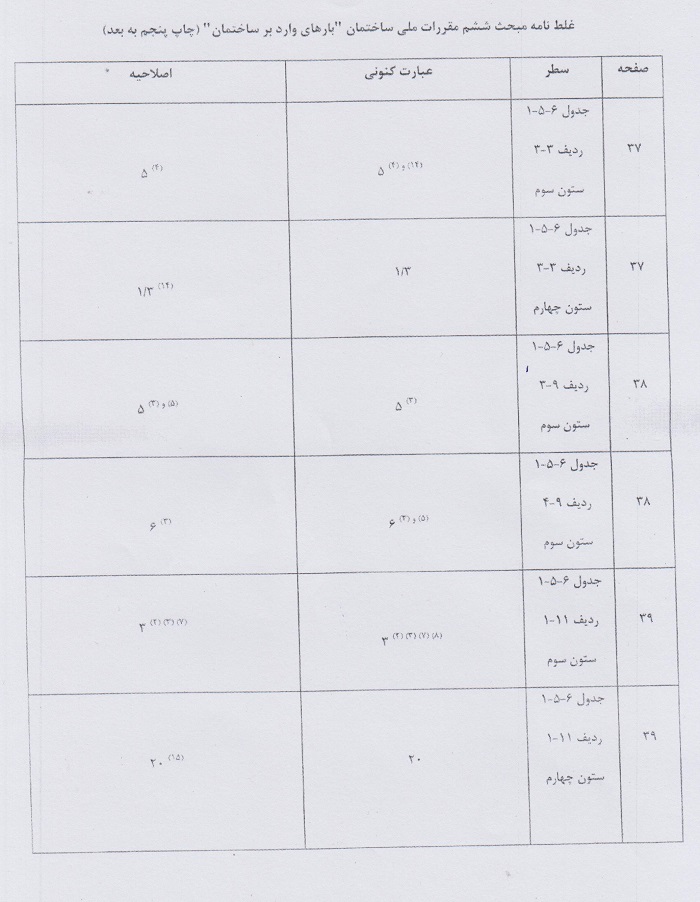 غلط نامه مبحث ششم مقررات ملی ساختمان "بارهای وارد بر ساختمان" (چاپ پنجم به بعد)
صفحه سطر عبارت کنونی اصلاحیه
جدول ۶-۵-۱
۳۷ ردیف ۳-۳ ۵ (۴) و (۱۴) ۵ (۴)
ستون سوم
جدول ۶-۵-۱
۳۷ ردیف ۳-۳ ۱/۳ ۱/۳ (۱۴)
ستون چهارم
جدول ۶-۵-۱
۳۸ ردیف ۹-۳ ۵ (۳) ۵ (۳) و (۵)
ستون سوم
جدول ۶-۵-۱
۳۸ ردیف ۹-۴ ۶ (۳) و (۵) ۶ (۳)
ستون سوم
جدول ۶-۵-۱
۳۹ ردیف ۱۱-۱ ۳ (۲) (۳) (۷) (۸) ۳ (۲) (۳) (۷)
ستون سوم
جدول ۶-۵-۱
۳۹ ردیف ۱۱-۱ ۲۰ ۲۰ (۱۵)
ستون چهارم